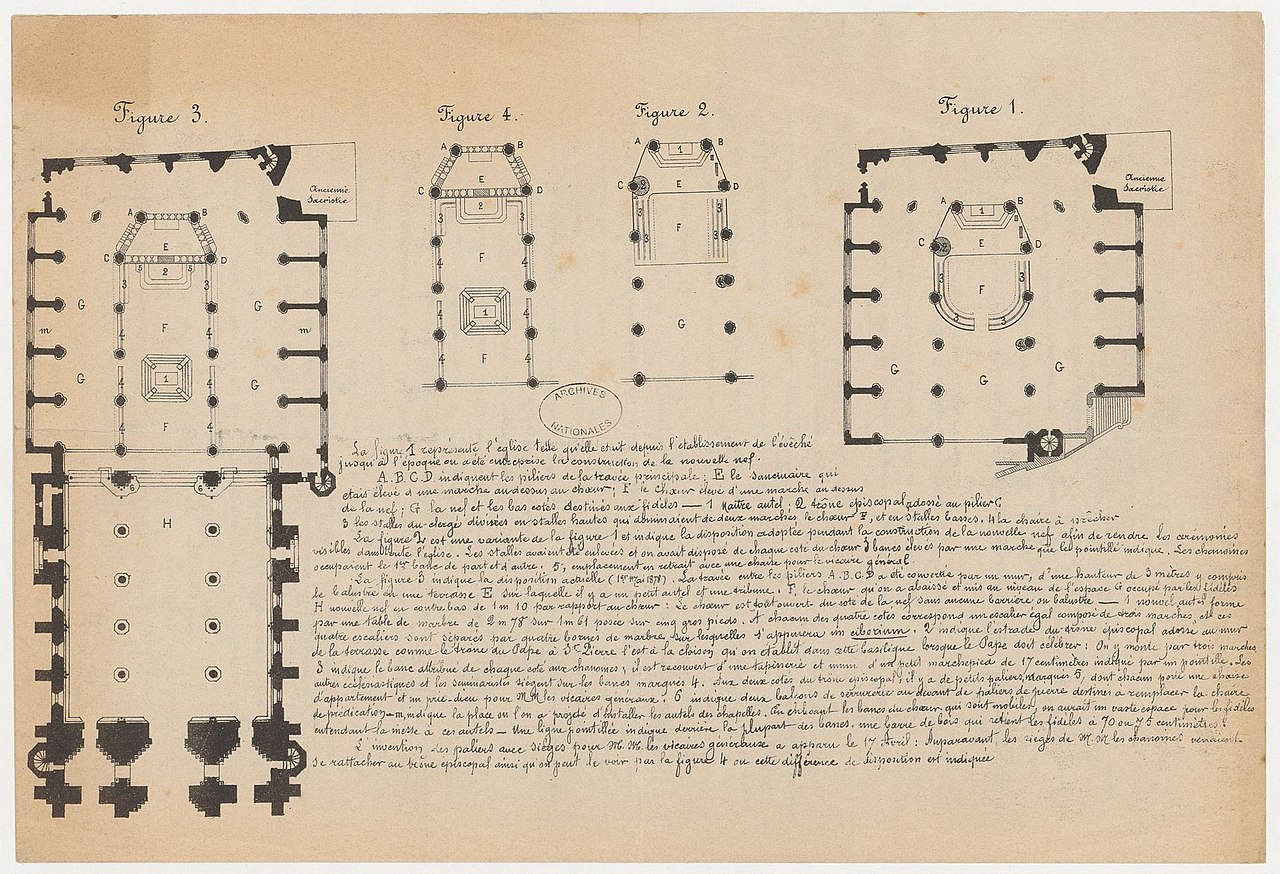 Figure 3.
Figure 4.
Figure 2.
Figure 1.
Ancienne
Sacristie
A B
E
C D
5 2 5
3 3
F
4 4
G G
m m
G G
1
F
6 6
H
A B
E
C D
2
3 3
F
4 4
1
F
4 4
A 1 B
C 2 E D
3 F 3
G
Ancienne
Sacristie
A 1 B
C 2 E D
3 F 3
3 3
G G G
ARCHIVES
NATIONALES
La figure 1 représente l'église telle qu'elle etait depuis l'établissement de l'évêché
jusqu'à l'époque où a été entreprise la construction de la nouvelle nef.
A.B.C.D indiquent les piliers de la travée principale; E le sanctuaire qui
etait élevé d'une marche au dessus du chœur; F le chœur élevé d'une marche au dessus
de la nef; G la nef et les bas cotés destinés aux fidèles — 1 Maitre autel; 2 trône episcopal adossé au pilier C
3 les stalles du clergé divisées en stalles hautes qui dominaient de deux marches le chœur F, et en stalles basses. 4 la chaire à prêcher
La figure 2 est une variante de la figure 1 et indique la disposition adoptée pendant la construction de la nouvelle nef afin de rendre les cérémonies
visibles dans toute l'église. Les stalles avaient été enlevées et on avait disposé de chaque coté du chœur 3 bancs élevés par une marche que le pointillé indique. Les chanoines
occupaient le 1er banc de part et d'autre. 5, emplacement en retrait avec une chaise pour le vicaire général.
La figure 3 indique la disposition actuelle (1er Mai 1878). La travée entre les piliers A.B.C.D a été convertie par un mur, d'une hauteur de 3 mètres y compris
le balustre en une terrasse E sur laquelle il y a un petit autel et une tribune. F, le chœur qu'on a abaissé et mis au niveau de l'espace G occupé par les fidèles
H nouvelle nef en contre bas de 1m 10 par rapport au chœur: Le chœur est tout ouvert du coté de la nef sans aucune barrière ou balustre — 1 nouvel autel formé
par une table de marbre de 2m 78 sur 1m 61 posée sur cinq gros pieds. A chacun des quatre cotés correspond un escalier égal composé de trois marches, et ces
quatre escaliers sont séparés par quatre bornes de marbre sur lesquelles s'appuiera un ciborium. 2 indique l'estrade du trône episcopal adossé au mur
de la terrasse comme le trône du Pape à St Pierre l'est à la cloison qu'on établit dans cette Basilique lorsque le Pape doit célébrer: On y monte par trois marches
3 indique le banc attribué de chaque coté aux chanoines, il est recouvert d'une tapisserie et muni d'un petit marchepied de 17 centimètres indiqué par un pointillé. Les
autres ecclésiastiques et les seminaristes siègent sur les bancs marqués 4. Aux deux cotés du trône episcopal, il y a de petits paliers, marqués 5, dont chacun porte une chaise
d'appartement et un prie-dieu pour MM les vicaires généraux. 6 indique deux balcons de serrurerie au devant de paliers de pierre destinés à remplacer la chaire
de prédication — m, indique la place où l'on a projeté d'installer les autels des chapelles. En enlevant les bancs du chœur qui sont mobiles, on aurait un vaste espace pour les fidèles
entendant la messe à ces autels — Une ligne pointillée indique derrière la plupart des bancs, une barre de bois qui retient les fidèles à 70 ou 75 centimètres.
L'invention des paliers avec sièges pour M.M. les vicaires généraux a apparu le 17 Avril: Auparavant, les sièges de M.M les chanoines venaient
se rattacher au trône episcopal ainsi qu'on peut le voir par la figure 4 où cette différence de disposition est indiquée